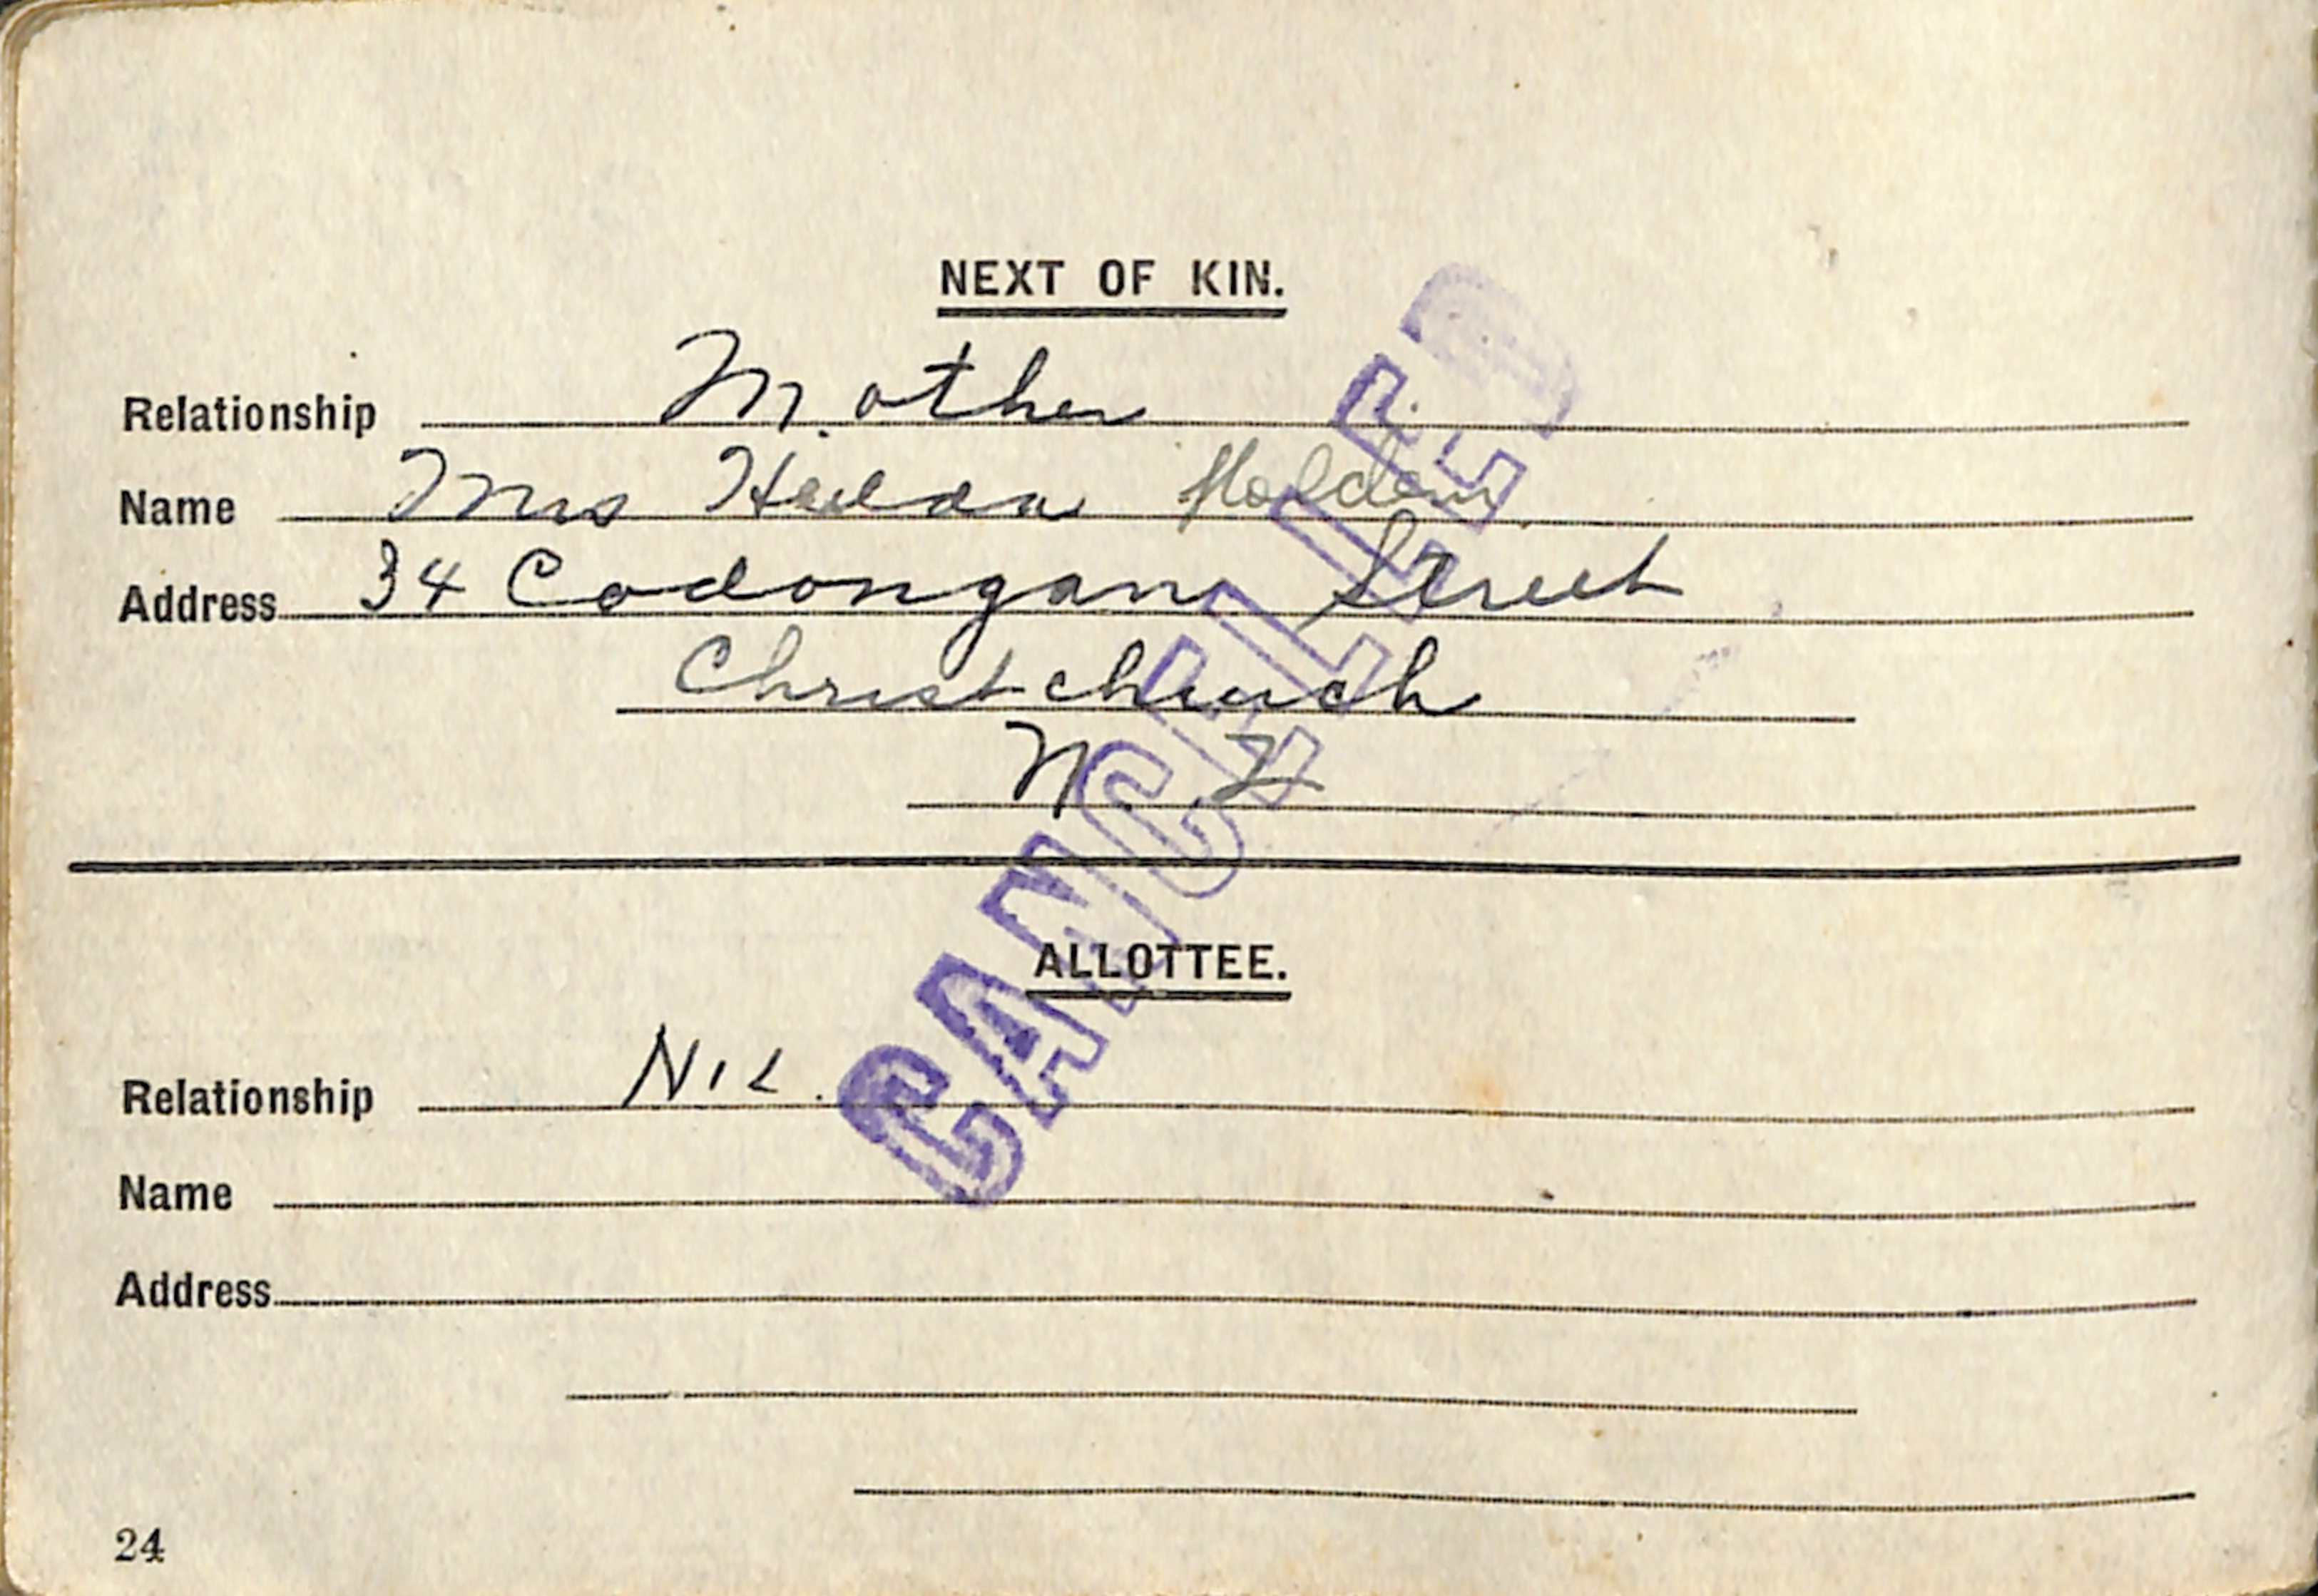 NEXT OF KIN.
Relationship Mother
Name Mrs Hilda Holdem
Address 34 Cadongan Street
Christchurch
N Z
CANCELLED
ALLOTTEE.
Relationship NIL.
Name
Address
24